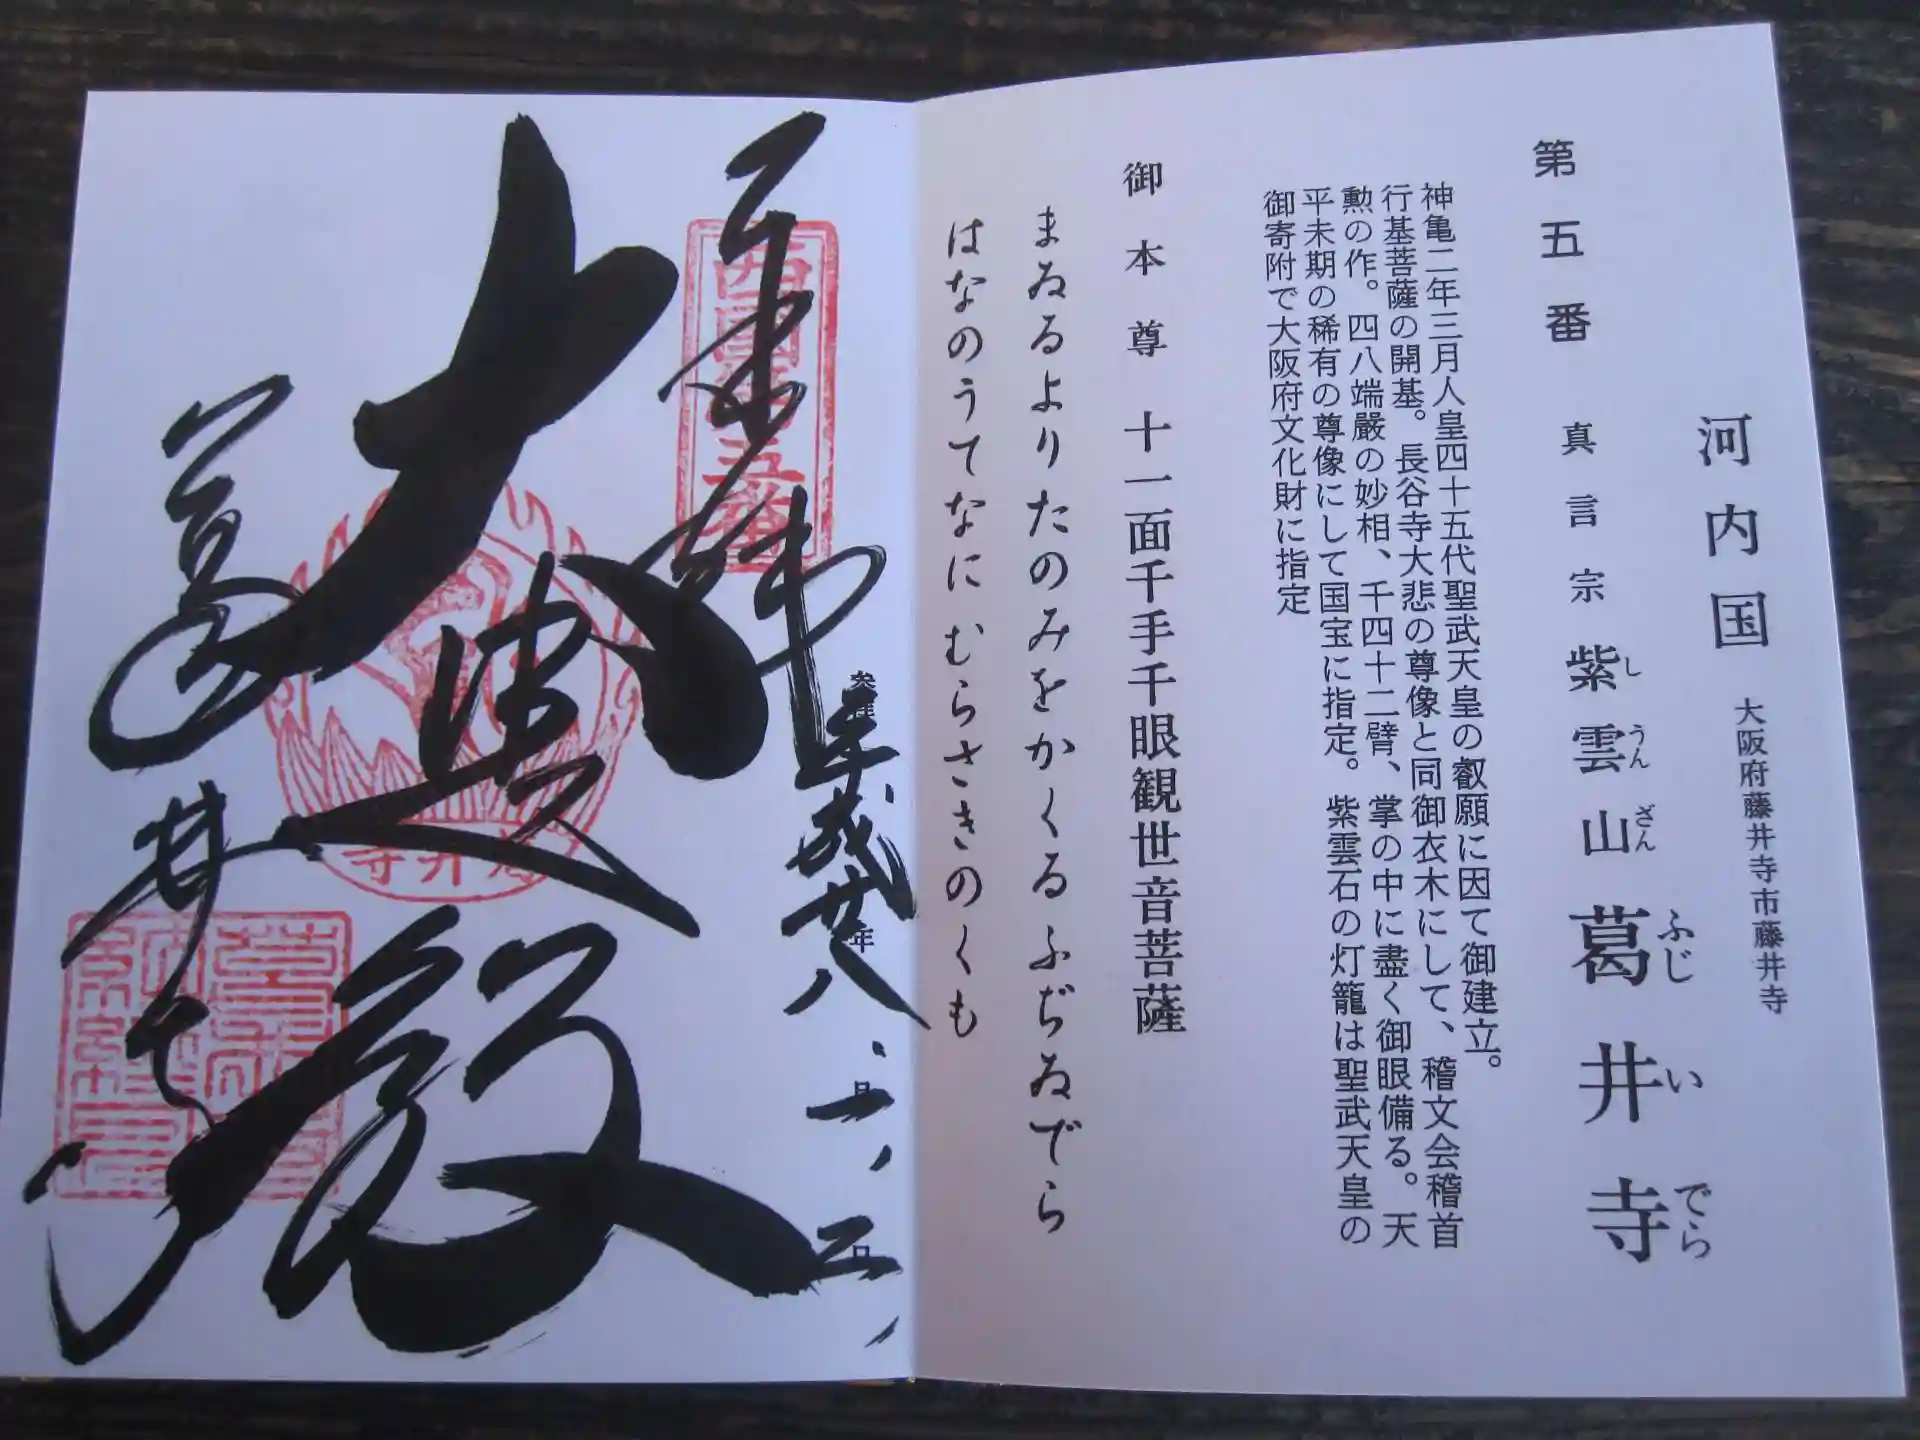 河内国 大阪府藤井寺市藤井寺
第五番 真言宗 紫雲山 葛井寺
し うん ざん ふじ い でら
神亀二年三月人皇四十五代聖武天皇の叡願に因て御建立。
行基菩薩の開基。長谷寺大悲の尊像と同御衣木にして、稽文会稽首
勲の作。四八端嚴の妙相、千四十二臂、掌の中に盡く御眼備る。天
平未期の稀有の尊像にして国宝に指定。紫雲石の灯籠は聖武天皇の
御寄附で大阪府文化財に指定
御本尊 十一面千手千眼観世音菩薩
まゐるよりたのみをかくるふぢゐでら
はなのうてなに むらさきのくも
平成廿八年 二月 二日
奉拝
西国第五番
大悲殿
葛井寺
葛井寺